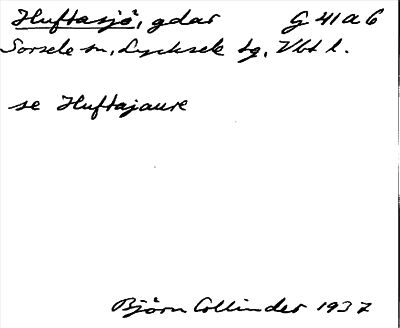 Huftasjö, gdar G 41 a 6
Sorsele sn, Lycksele tg, Vbt l.
se Huftajaure
Björn Collinder 1937